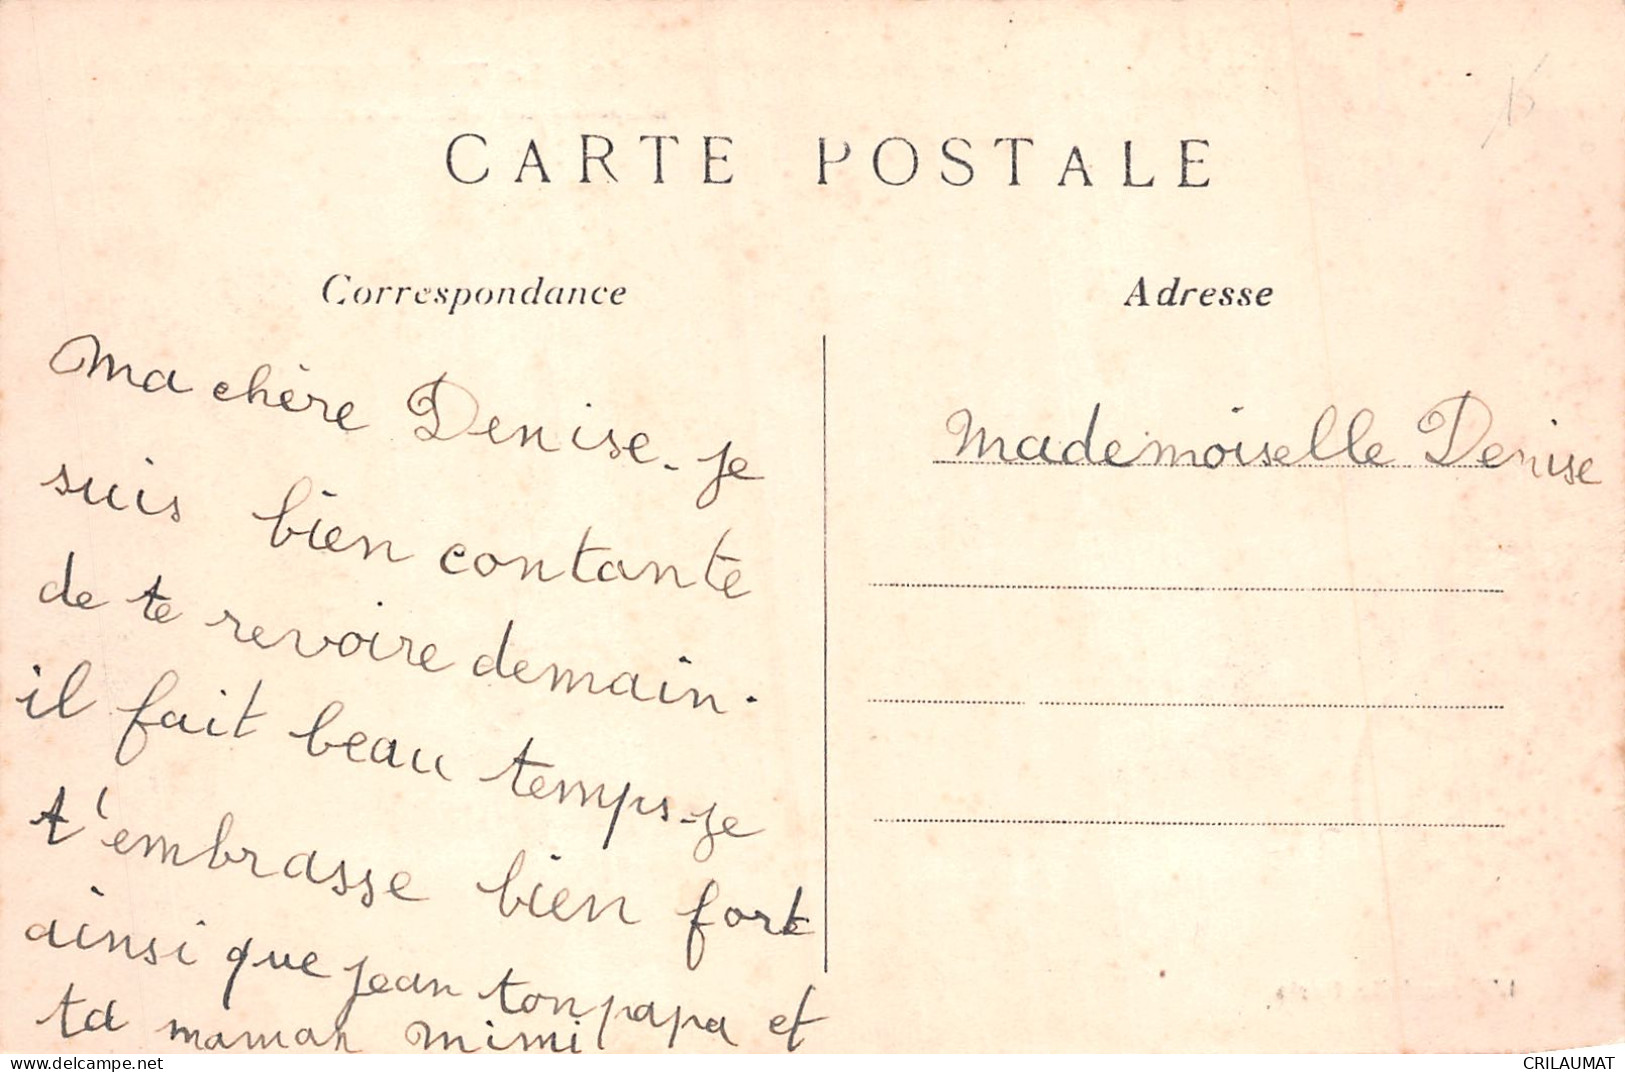 15
CARTE POSTALE
Correspondance
Adresse
Ma chère Denise. je
suis bien contante
de te revoire demain.
il fait beau temps. je
t'embrasse bien fort
ainsi que jean ton papa et
ta maman mimi
Mademoiselle Denise
www.delcampe.net
CRILAUMAT